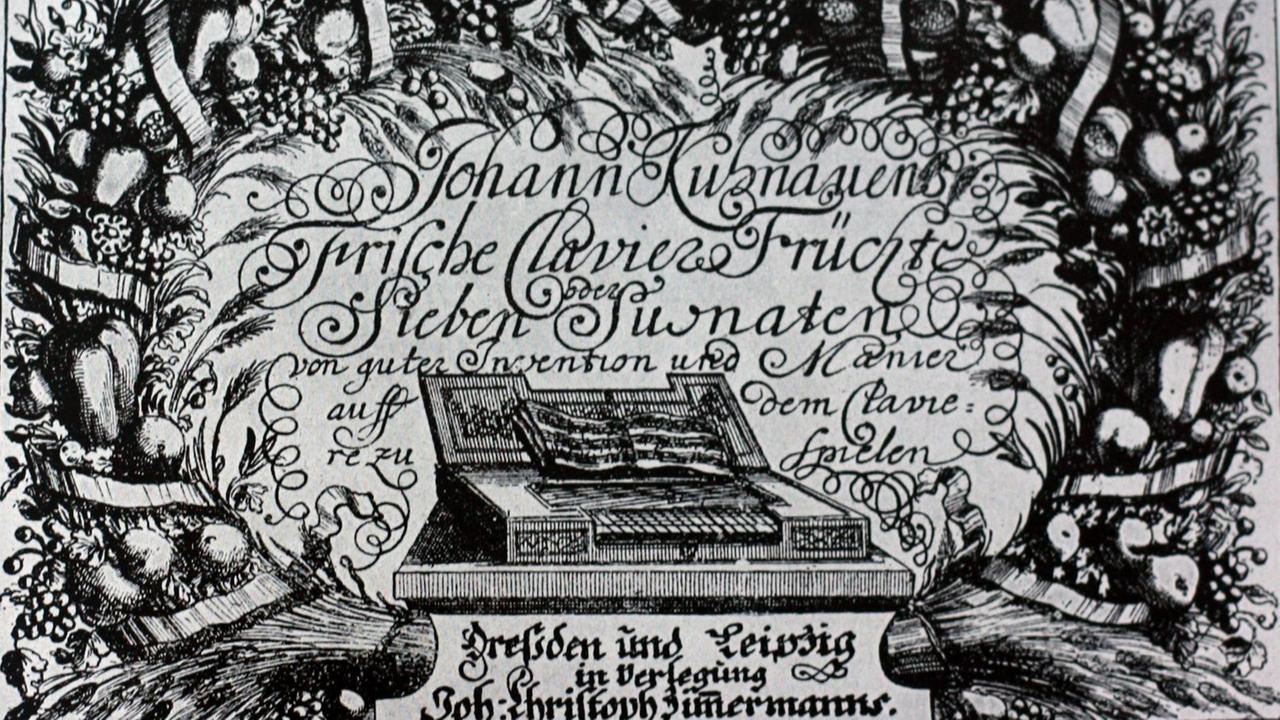 Johann Kuhnauens
Frische Clavier Früchte
oder
Sieben Suonaten
von guter Invention und Manier
auff dem Clavie=
re zu spielen
Dreßden und Leipzig
in Verlegung
Joh: Christoph Zim̅ermanns.